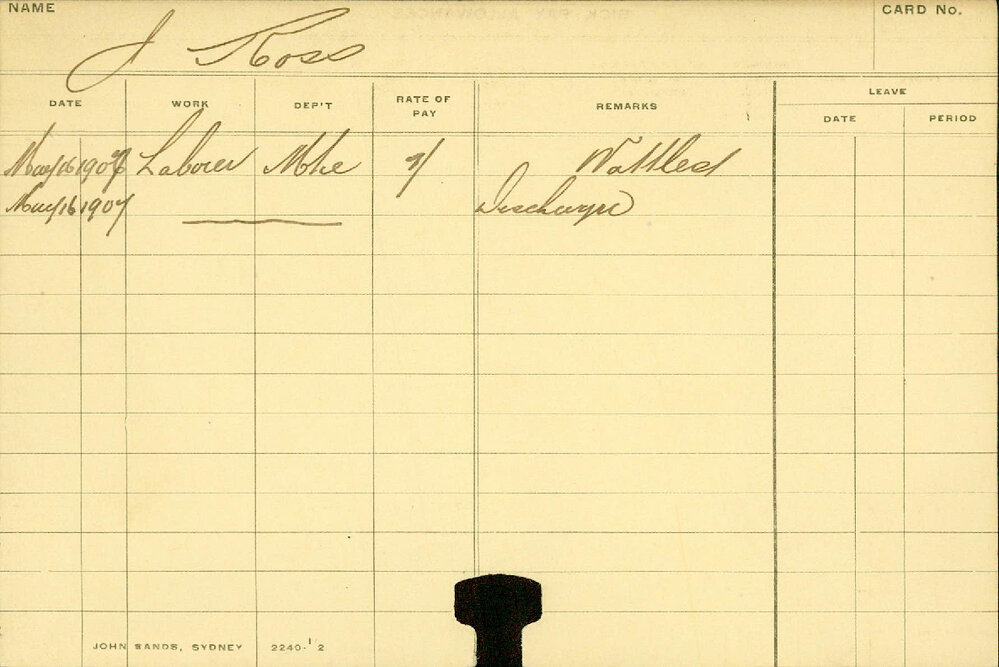 NAME
CARD No.
J Ross
DATE WORK DEP'T RATE OF PAY REMARKS LEAVE
DATE PERIOD
May 16 1907 Laborer Mtce 7/ Wattled
May 16 1907 Discharge
JOHN SANDS, SYDNEY 2240-1/2